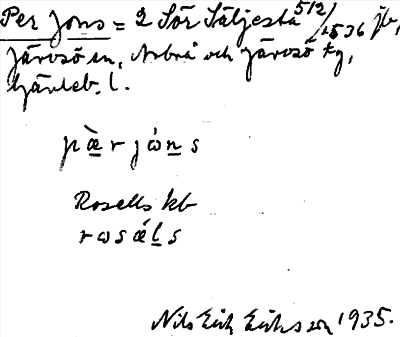 Per Jons = 2 Sör Säljesta 5/2/1536 jb,
Järvsö sn, Arbrå och Järvsö tg,
Gävleb. l.
pæ̀r jón s
Rosells kb
rωsǽl s
Nils Erik Eriksson 1935.